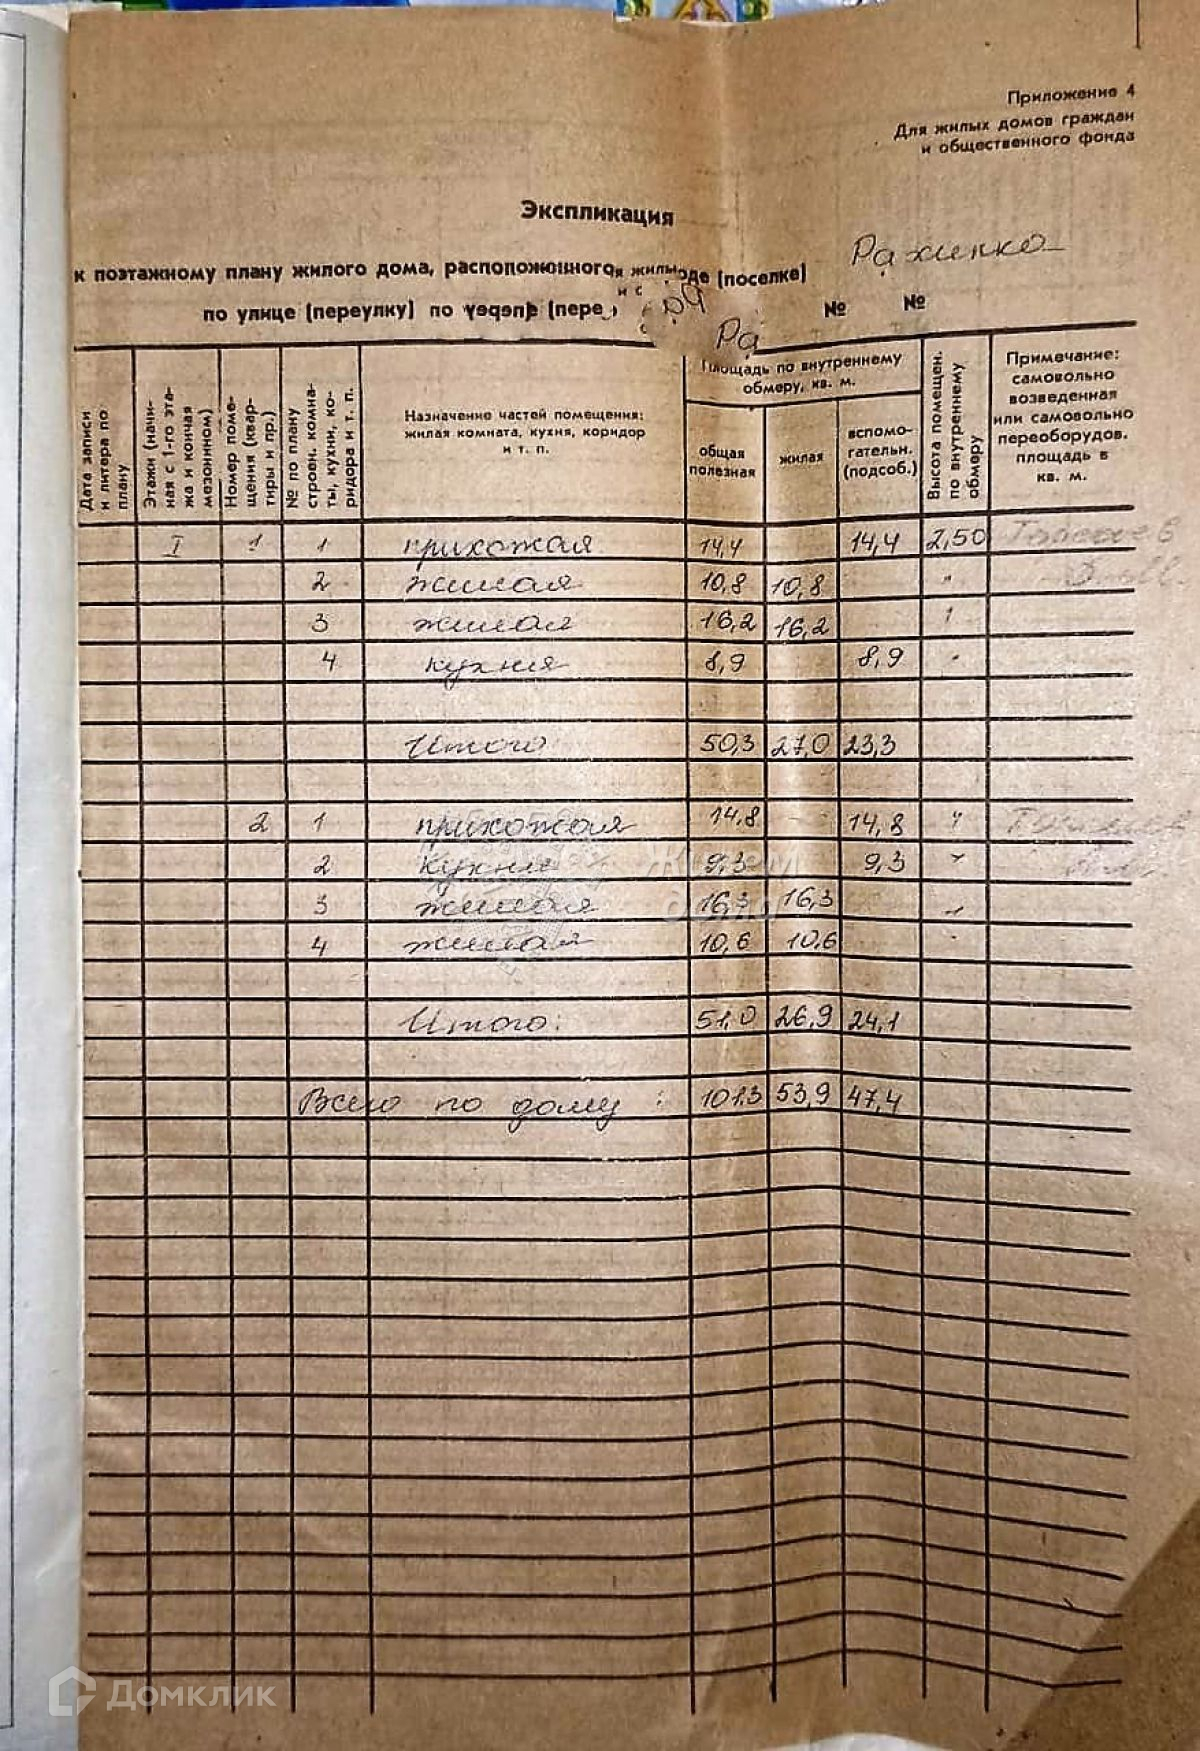 Приложение 4
Для жилых домов граждан
и общественного фонда
Экспликация
к поэтажному плану жилого дома, расположенного
(поселке)
по улице (переулку) по
(пере
№ №
Ра
Дата записи и литера по плану
Этажи (начиная с 1-го этажа и кончая мезонином)
Номер помещения (квартиры и пр.)
№ по плану строен. комнаты, кухни, коридора и т. п.
Назначение частей помещения: жилая комната, кухня, коридор и т. п.
Площадь по внутреннему обмеру, кв. м.
общая полезная
жилая
вспомогательн. (подсоб.)
Высота помещен. по внутреннему обмеру
Примечание: самовольно возведенная или самовольно переоборудов. площадь в кв. м.
I 1 1 прихожая 14,4 14,4 2,50
2 жилая 10,8 10,8 "
3 жилая 16,2 16,2
4 кухня 8,9 8,9
Итого 50,3 27,0 23,3
2 1 прихожая 14,8 14,8 "
2 кухня 9,3 9,3 "
3 жилая 16,3 16,3
4 жилая 10,6 10,6
Итого: 51,0 26,9 24,1
Всего по дому : 101,3 53,9 47,4
Домклик